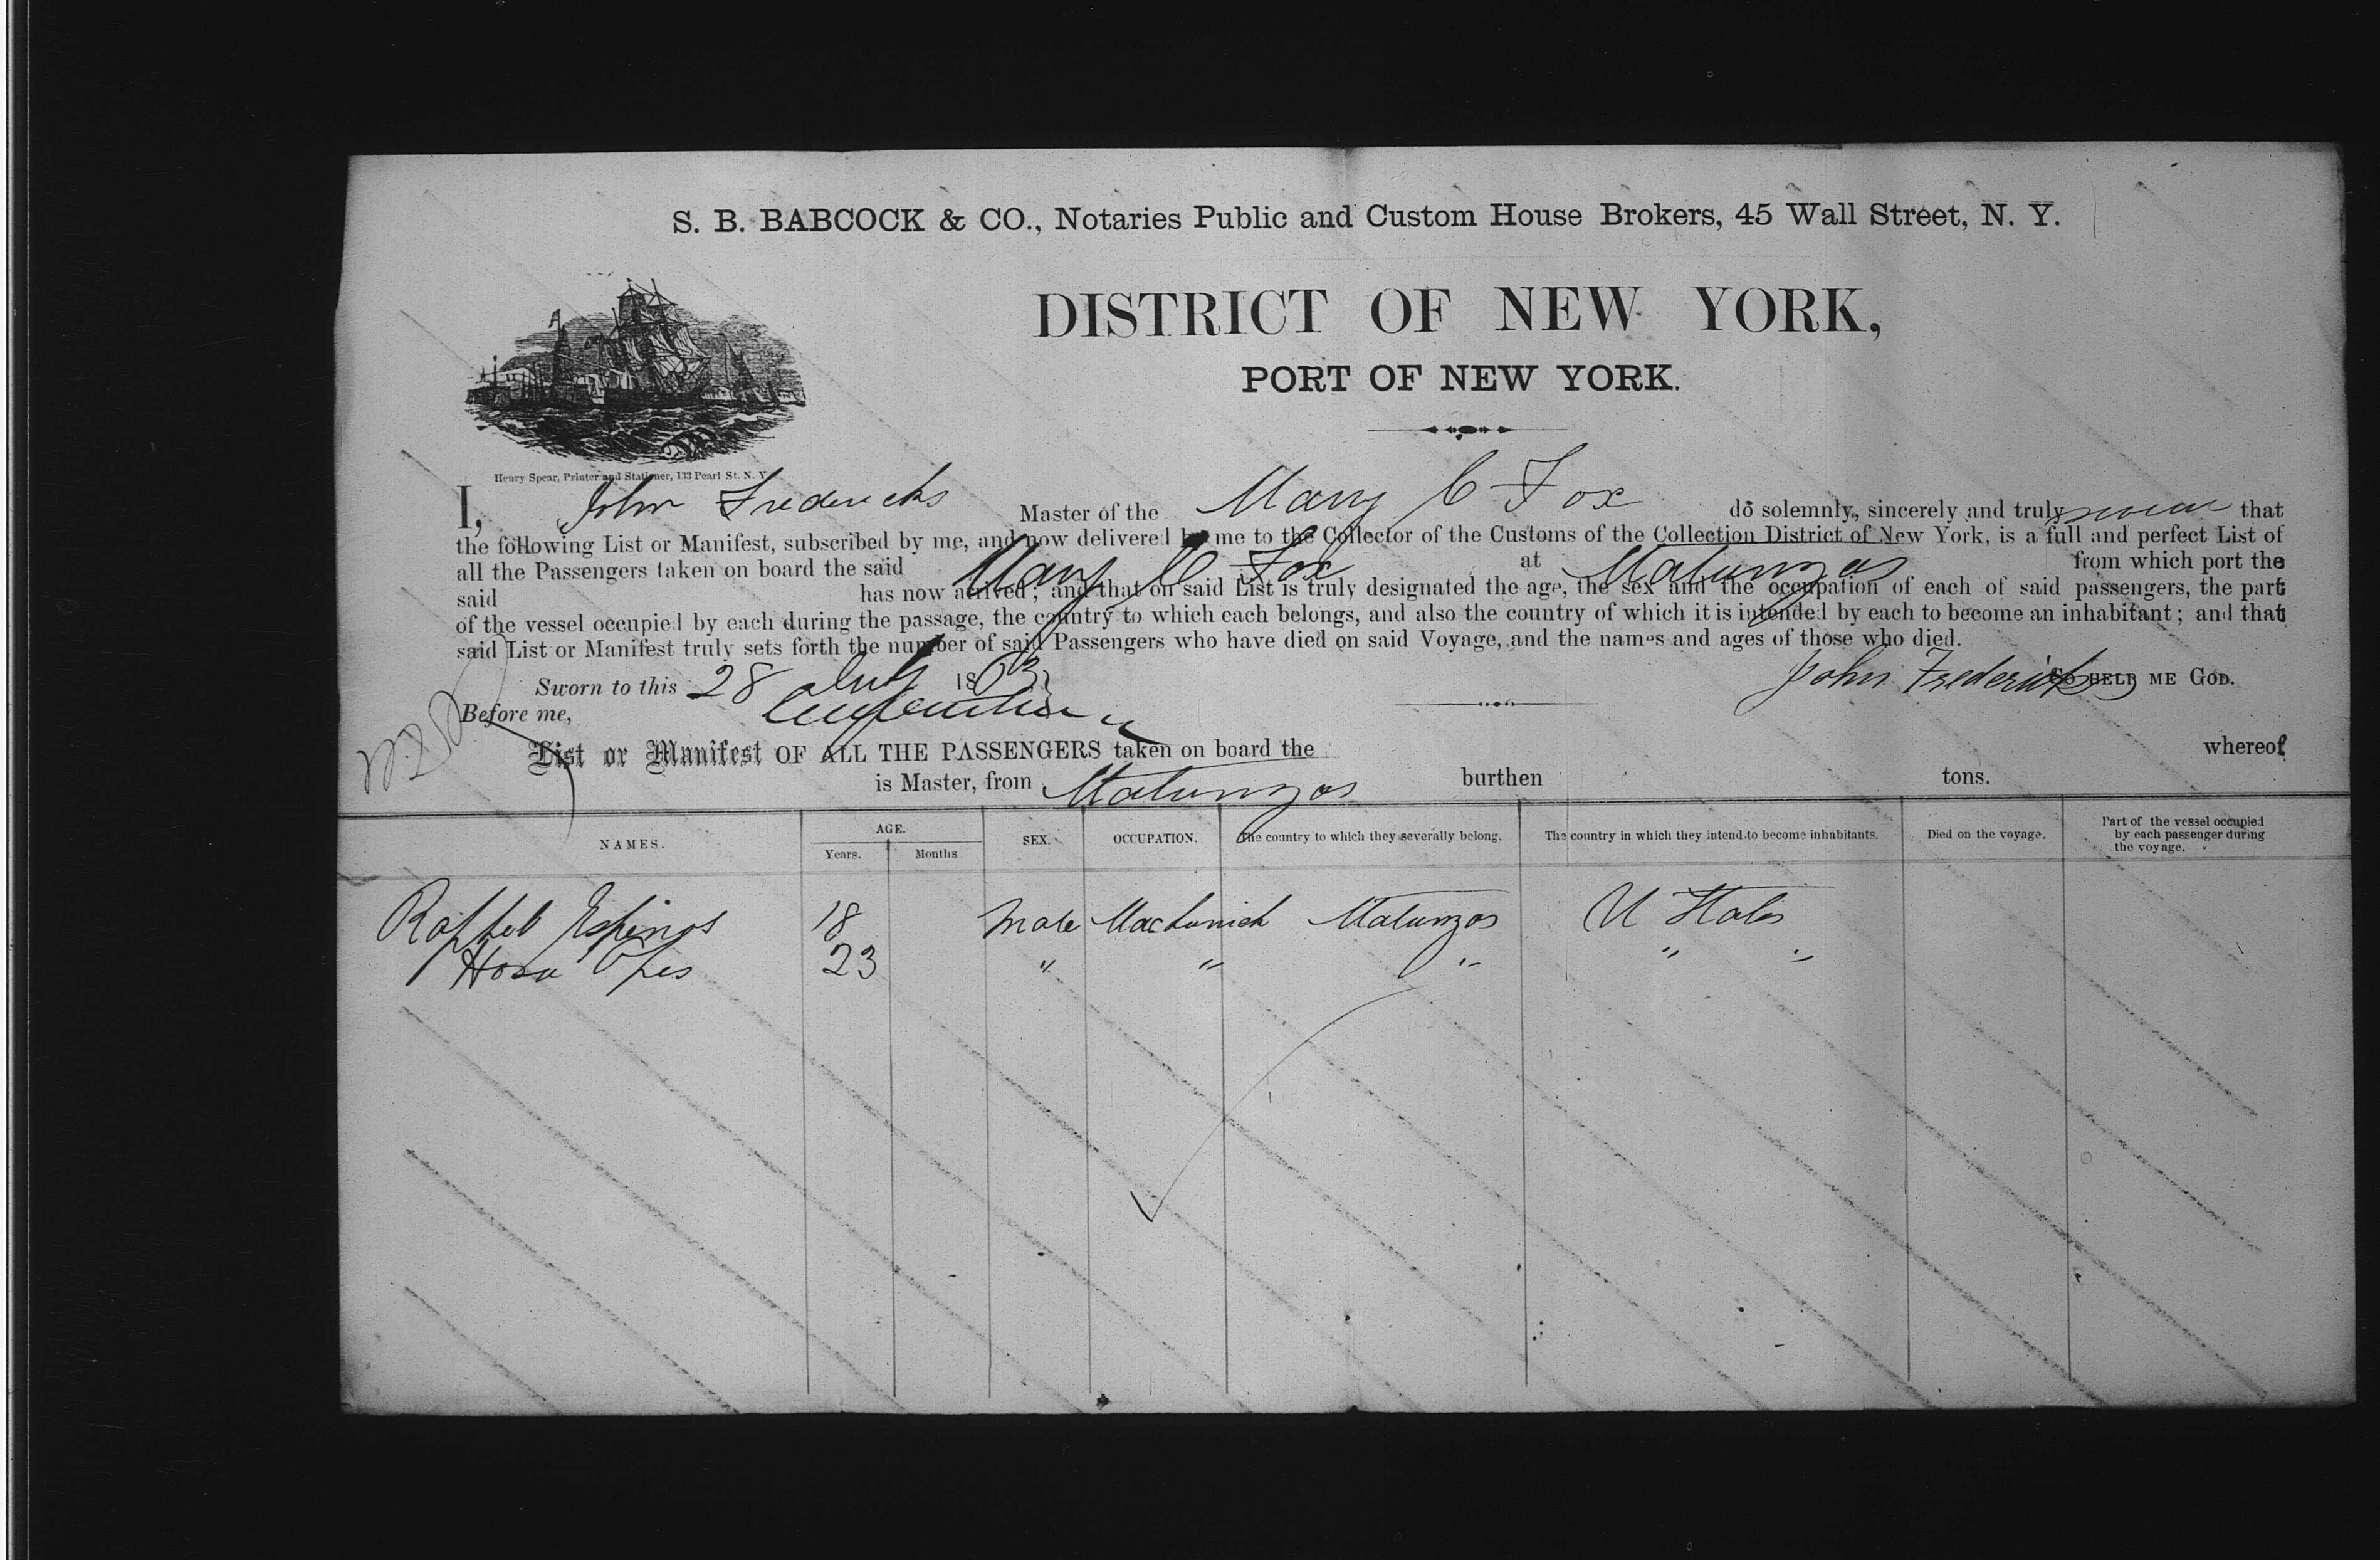 S. B. BABCOCK & CO., Notaries Public and Custom House Brokers, 45 Wall Street, N. Y.
DISTRICT OF NEW YORK,
PORT OF NEW YORK.
Henry Spear, Printer and Stationer, 133 Pearl St. N. Y.
I, John Fredericks Master of the Mary C Fox do solemnly, sincerely and truly swear that
the following List or Manifest, subscribed by me, and now delivered by me to the Collector of the Customs of the Collection District of New York, is a full and perfect List of
all the Passengers taken on board the said Mary C Fox at Matanzas from which port the
said has now arrived; and that on said List is truly designated the age, the sex and the occupation of each of said passengers, the part
of the vessel occupied by each during the passage, the country to which each belongs, and also the country of which it is intended by each to become an inhabitant; and that
said List or Manifest truly sets forth the number of said Passengers who have died on said Voyage, and the names and ages of those who died.
Sworn to this 28 July 1863 John Fredericks SO HELP ME GOD.
Before me,
List or Manifest OF ALL THE PASSENGERS taken on board the whereof
is Master, from Matanzas burthen tons.
NAMES. AGE. Years. Months SEX. OCCUPATION. The country to which they severally belong. The country in which they intend to become inhabitants. Died on the voyage. Part of the vessel occupied by each passenger during the voyage.
Espinos 18 Male Machanick Matanzas U States
23 " " " " "